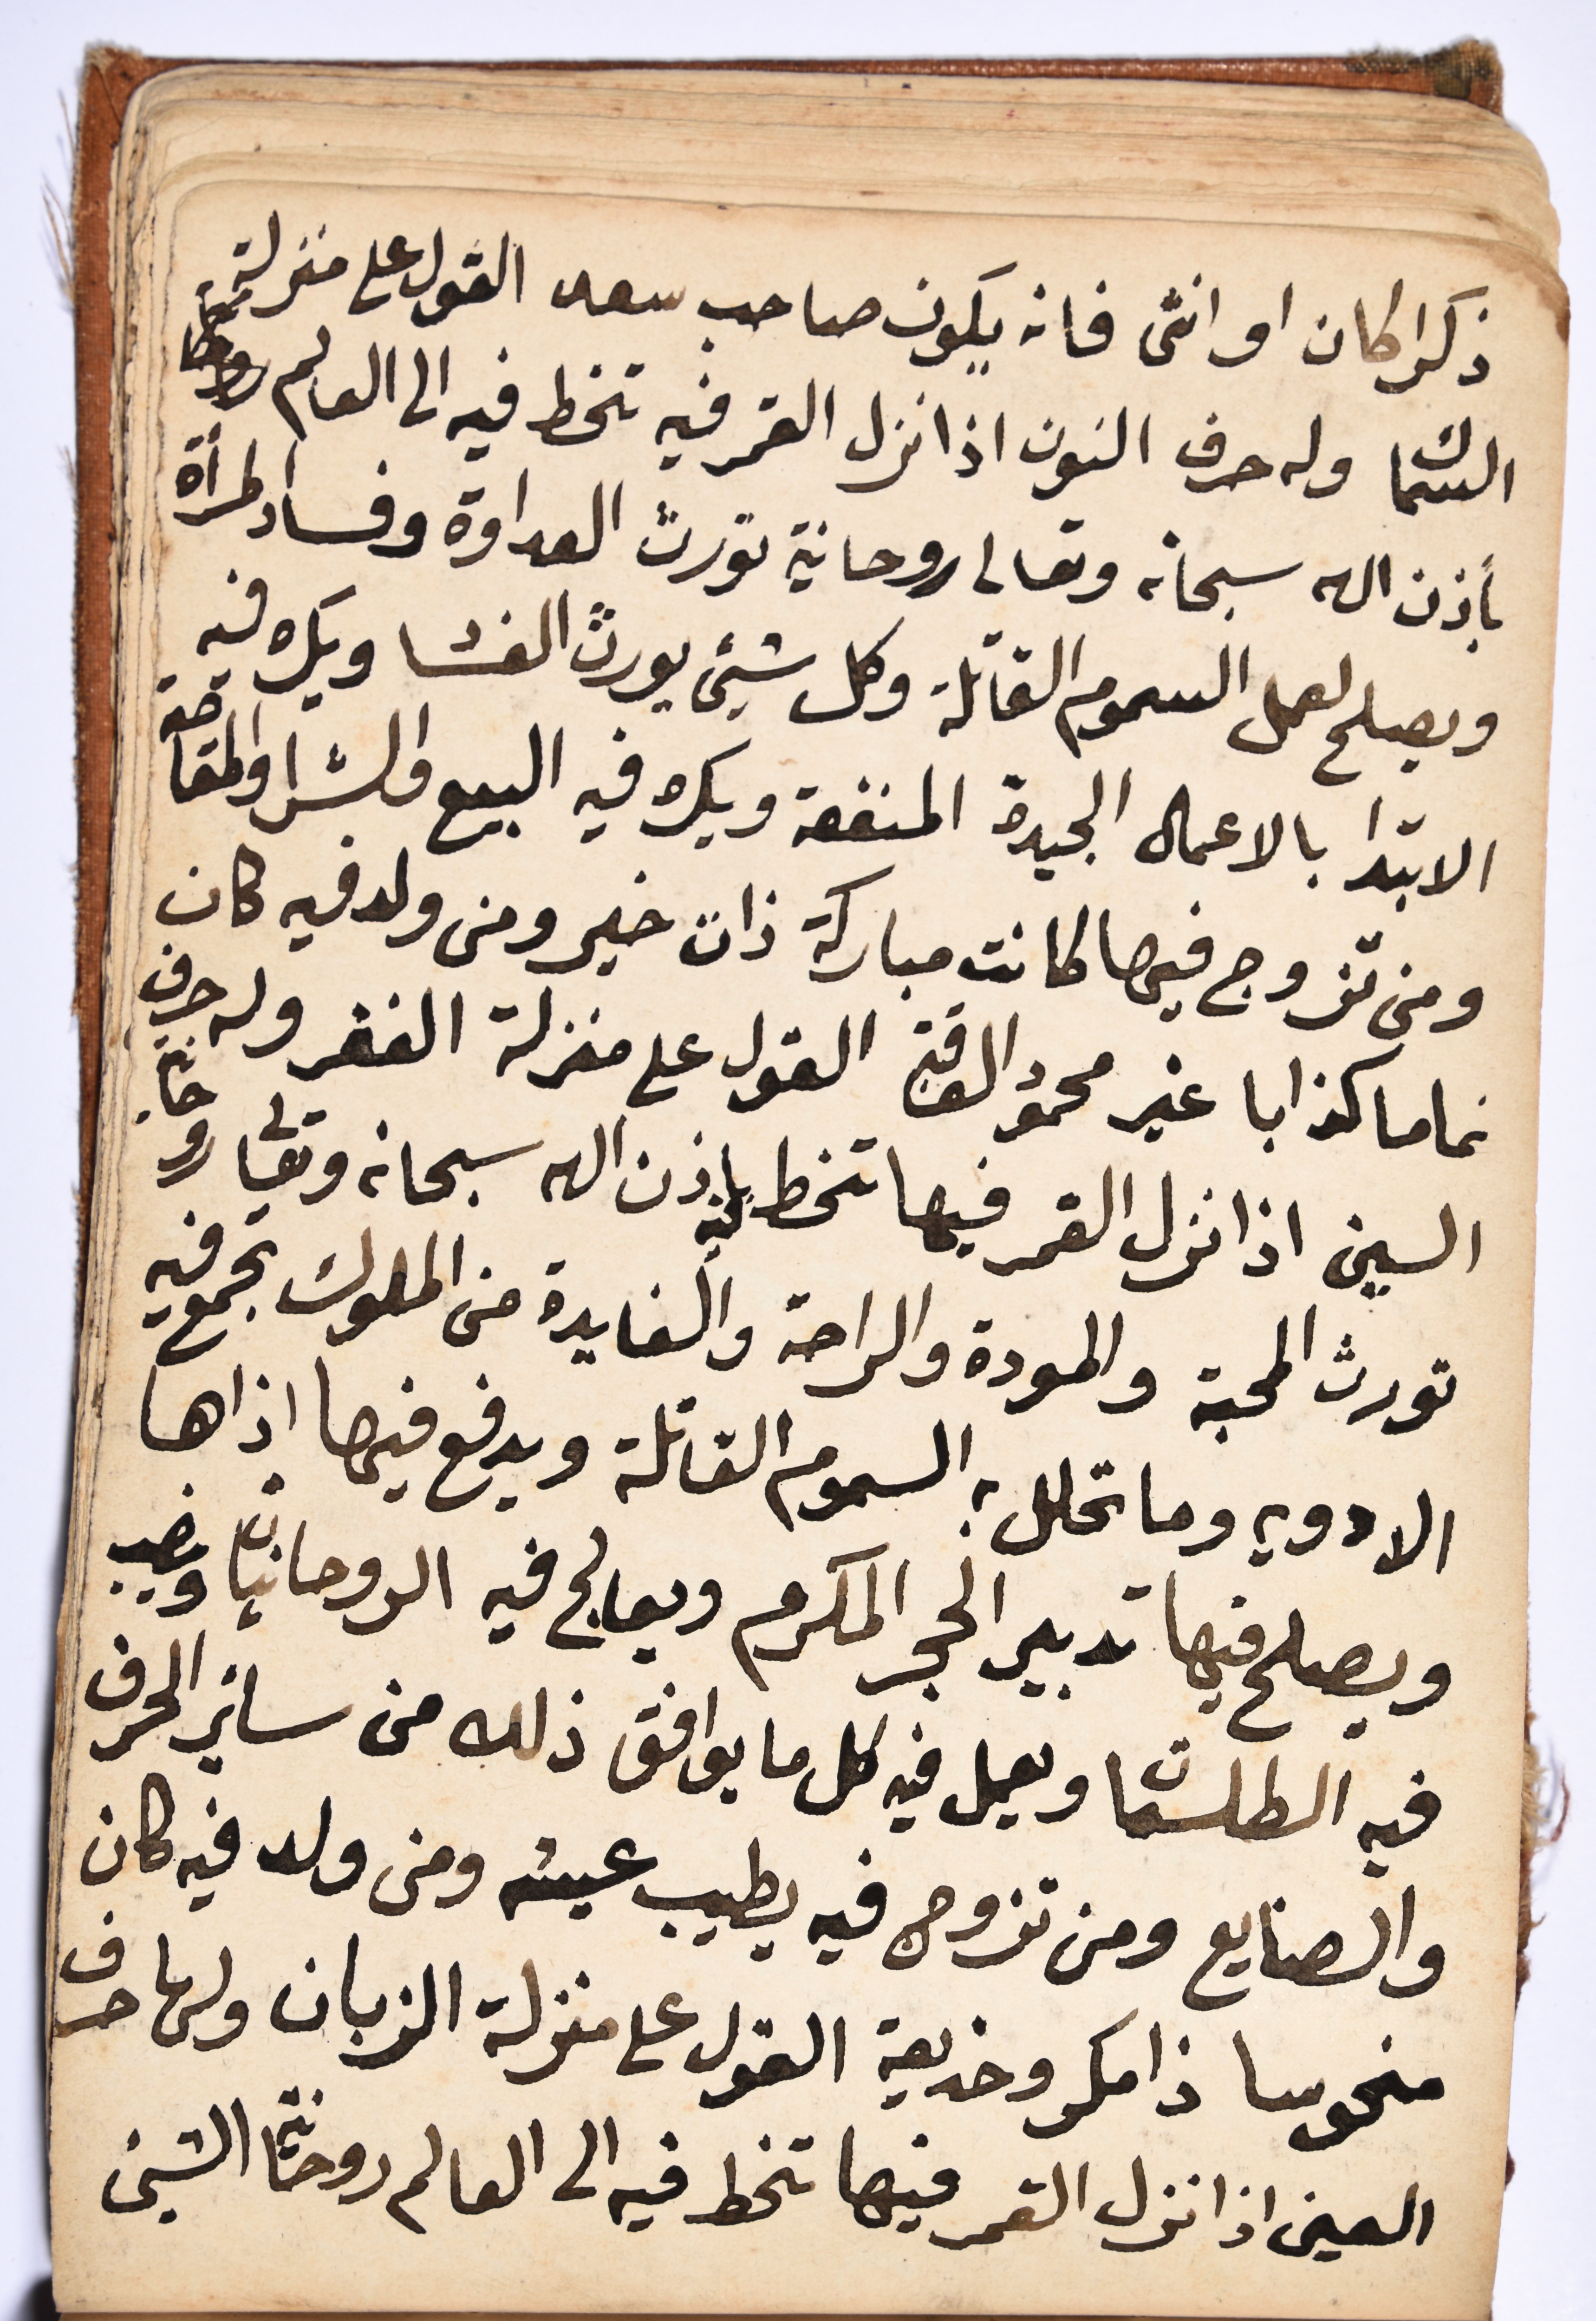 ذكرا كان او انثى فانه يكون صاحب سعد القول على منزلة
السماك وله حرف النون اذا نزل القمر فيه تخط فيه الى العالم روحانية
بأذن الله سبحانه وتعالى روحانية تورث العداوة وفساد المرأة
ويصلح لعمل السموم القاتلة وكل شيئ يورث الفساد ويكره فيه
الابتدا بالاعمال الجيدة المنفعة ويكره فيه البيع والشرا والمقايضة
ومن تزوج فيها كانت مباركة ذات خير ومن ولد فيه كان
نماما كذابا غير محمود العاقبة القول على منزلة الغفر وله حرف
السين اذا نزل القمر فيها تخط فيه باذن الله سبحانه وتعالى روحانية
تورث المحبة والمودة والراحة والفايدة من الملوك تجمع فيه
الادويه وما تحلل به السموم القاتلة ويدفع فيها اذاها
ويصلح فيها تدبير الحجر المكرم ويعالج فيه الروحانيات وينصب
فيه الطلسمات ويعمل فيه كل ما يوافق ذلك من ساير الحرف
والصنايع ومن تزوج فيه يطيب عيشه ومن ولد فيه كان
منحوسا ذا مكر وخديعة القول على منزلة الزبان ولها حرف
العين اذا نزل القمر فيها تخط فيه الى العالم روحانية الشين